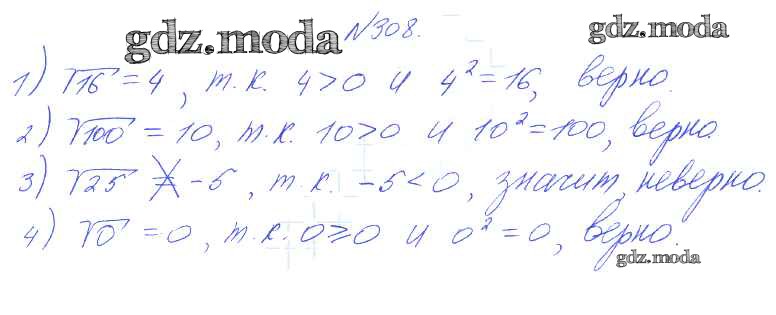 gdz.moda №308. gdz.moda
1) √16 = 4, т.к. 4>0 и 4²=16, верно.
2) √100 = 10, т.к. 10>0 и 10²=100, верно.
3) √25 ≠ -5, т.к. -5<0, значит, неверно.
4) √0 = 0, т.к. 0≥0 и 0²=0, верно.
gdz.moda